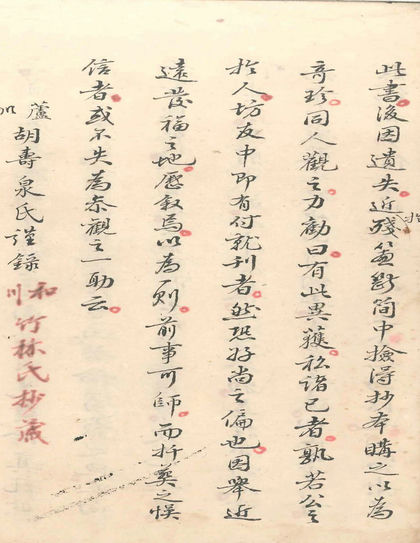 此書後因遺失近於殘篇斷簡中撿得抄本購之以為
奇珍同人觀之力勸曰有此異獲私諸己者孰若公之
於人坊友中即有付就刊者然恐好尚之偏也因舉近
遠發福之地歷敘焉以為則前事可師而折奠之悞
信者或不失為參觀之一助云
蘆 胡壽泉氏謹錄
和川竹林氏抄藏